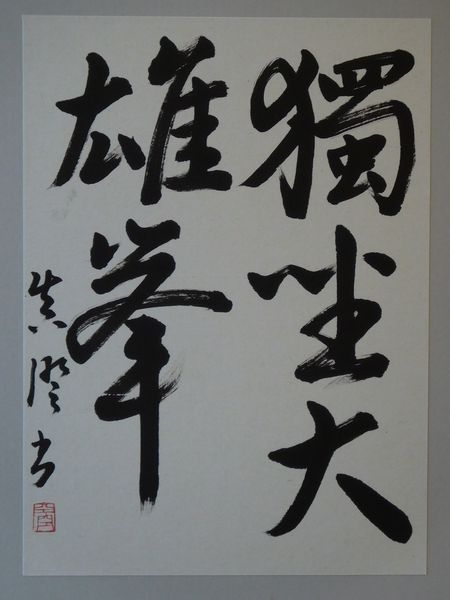 獨坐大
雄峯